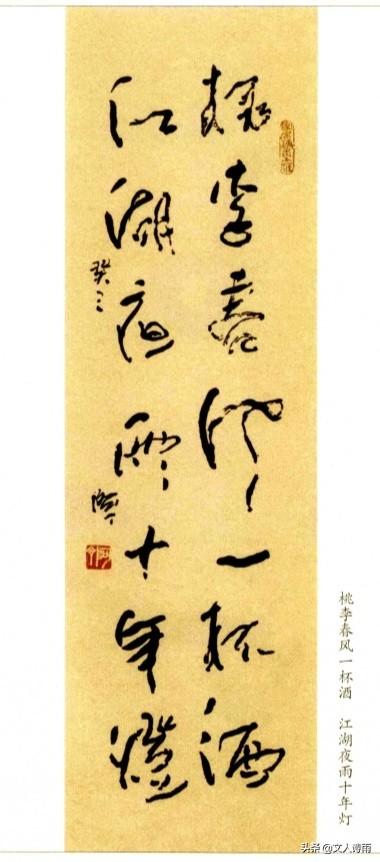 桃李春风一杯酒
江湖夜雨十年灯
癸三
桃李春风一杯酒 江湖夜雨十年灯
头条@文人薄雨